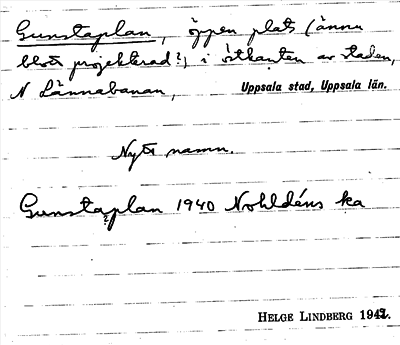 Gunstaplan, öppen plats (ännu
blott projekterad?) i östkanten av staden,
N Lännabanan, Uppsala stad, Uppsala län.
Nytt namn.
Gunstaplan 1940 Nohldéns ka
?
HELGE LINDBERG 1942.